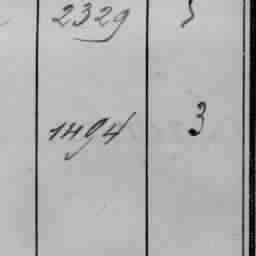 2329
1494 3